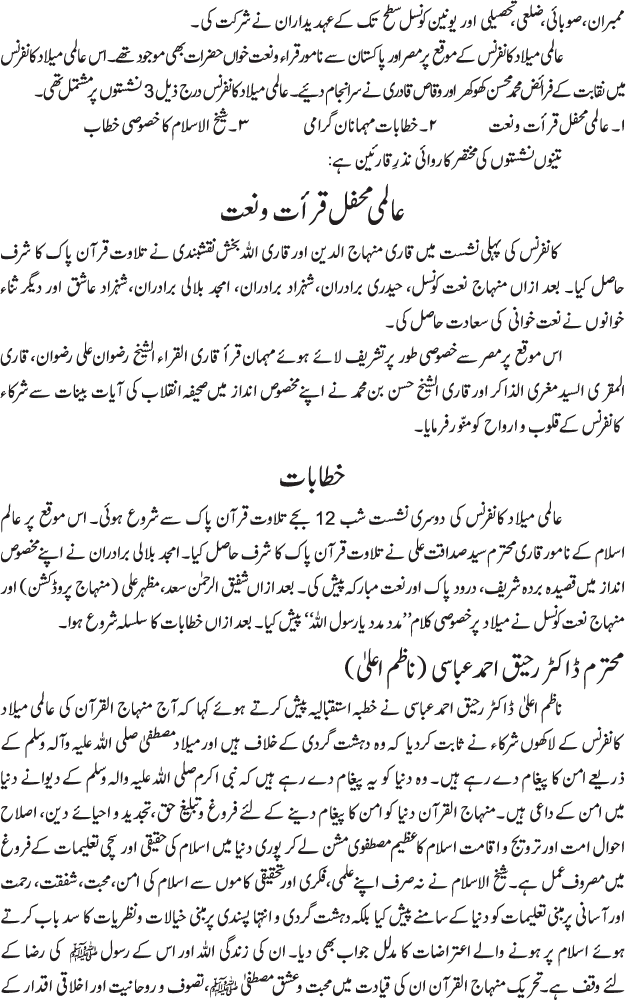 ممبران، صوبائی، ضلعی، تحصیلی اور یونین کونسل سطح تک کے عہدیداران نے شرکت کی۔
عالمی میلاد کانفرنس کے موقع پر مصر اور پاکستان سے نامور قراء و نعت خواں حضرات بھی موجود تھے۔ اس عالمی میلاد کانفرنس
میں نقابت کے فرائض محمد محسن کھوکھر اور وقاص قادری نے سرانجام دیئے۔ عالمی میلاد کانفرنس درج ذیل 3 نشستوں پر مشتمل تھی۔
۱۔ عالمی محفل قرأت و نعت ۲۔ خطابات مہمانان گرامی ۳۔ شیخ الاسلام کا خصوصی خطاب
تینوں نشستوں کی مختصر کاروائی نذرِ قارئین ہے:
عالمی محفل قرأت و نعت
کانفرنس کی پہلی نشست میں قاری منہاج الدین اور قاری اللہ بخش نقشبندی نے تلاوت قرآن پاک کا شرف
حاصل کیا۔ بعد ازاں منہاج نعت کونسل، حیدری برادران، شہزاد برادران، امجد بلالی برادران، شہزاد عاشق اور دیگر ثناء
خوانوں نے نعت خوانی کی سعادت حاصل کی۔
اس موقع پر مصر سے خصوصی طور پر تشریف لائے ہوئے مہمان قرأ قاری القراء الشیخ رضوان علی رضوان، قاری
المقری السید مغری الذاکر اور قاری الشیخ حسن بن محمد نے اپنے مخصوص انداز میں صحیفہ انقلاب کی آیات بینات سے شرکاء
کانفرنس کے قلوب و ارواح کو منّور فرمایا۔
خطابات
عالمی میلاد کانفرنس کی دوسری نشست شب 12 بجے تلاوت قرآن پاک سے شروع ہوئی۔ اس موقع پر عالم
اسلام کے نامور قاری محترم سید صداقت علی نے تلاوت قرآن پاک کا شرف حاصل کیا۔ امجد بلالی برادران نے اپنے مخصوص
انداز میں قصیدہ بردہ شریف، درود پاک اور نعت مبارکہ پیش کی۔ بعد ازاں شفیق الرحمٰن سعد، مظہر علی (منہاج پروڈکشن) اور
منہاج نعت کونسل نے میلاد پر خصوصی کلام ’’مدد مدد یارسول اللہ‘‘ پیش کیا۔ بعد ازاں خطابات کا سلسلہ شروع ہوا۔
محترم ڈاکٹر رحیق احمد عباسی (ناظم اعلیٰ)
ناظم اعلیٰ ڈاکٹر رحیق احمد عباسی نے خطبہ استقبالیہ پیش کرتے ہوئے کہا کہ آج منہاج القرآن کی عالمی میلاد
کانفرنس کے لاکھوں شرکاء نے ثابت کردیا کہ وہ دہشت گردی کے خلاف ہیں اور میلاد مصطفیٰ صلی اللہ علیہ وآلہ وسلم کے
ذریعے امن کا پیغام دے رہے ہیں۔ وہ دنیا کو یہ پیغام دے رہے ہیں کہ نبی اکرم صلی اللہ علیہ والہ وسلم کے دیوانے دنیا
میں امن کے داعی ہیں۔ منہاج القرآن دنیا کو امن کا پیغام دینے کے لئے فروغ و تبلیغ حق، تجدید و احیائے دین، اصلاح
احوال امت اور ترویج و اقامت اسلام کا عظیم مصطفوی مشن لے کر پوری دنیا میں اسلام کی حقیقی اور سچی تعلیمات کے فروغ
میں مصروف عمل ہے۔ شیخ الاسلام نے نہ صرف اپنے علمی، فکری اور تحقیقی کاموں سے اسلام کی امن، محبت، شفقت، رحمت
اور آسانی پر مبنی تعلیمات کو دنیا کے سامنے پیش کیا بلکہ دہشت گردی و انتہا پسندی پر مبنی خیالات و نظریات کا سد باب کرتے
ہوئے اسلام پر ہونے والے اعتراضات کا مدلل جواب بھی دیا۔ ان کی زندگی اللہ اور اس کے رسول ﷺ کی رضا کے
لئے وقف ہے۔ تحریک منہاج القرآن ان کی قیادت میں محبت و عشق مصطفیٰ ﷺ، تصوف و روحانیت اور اخلاقی اقدار کے